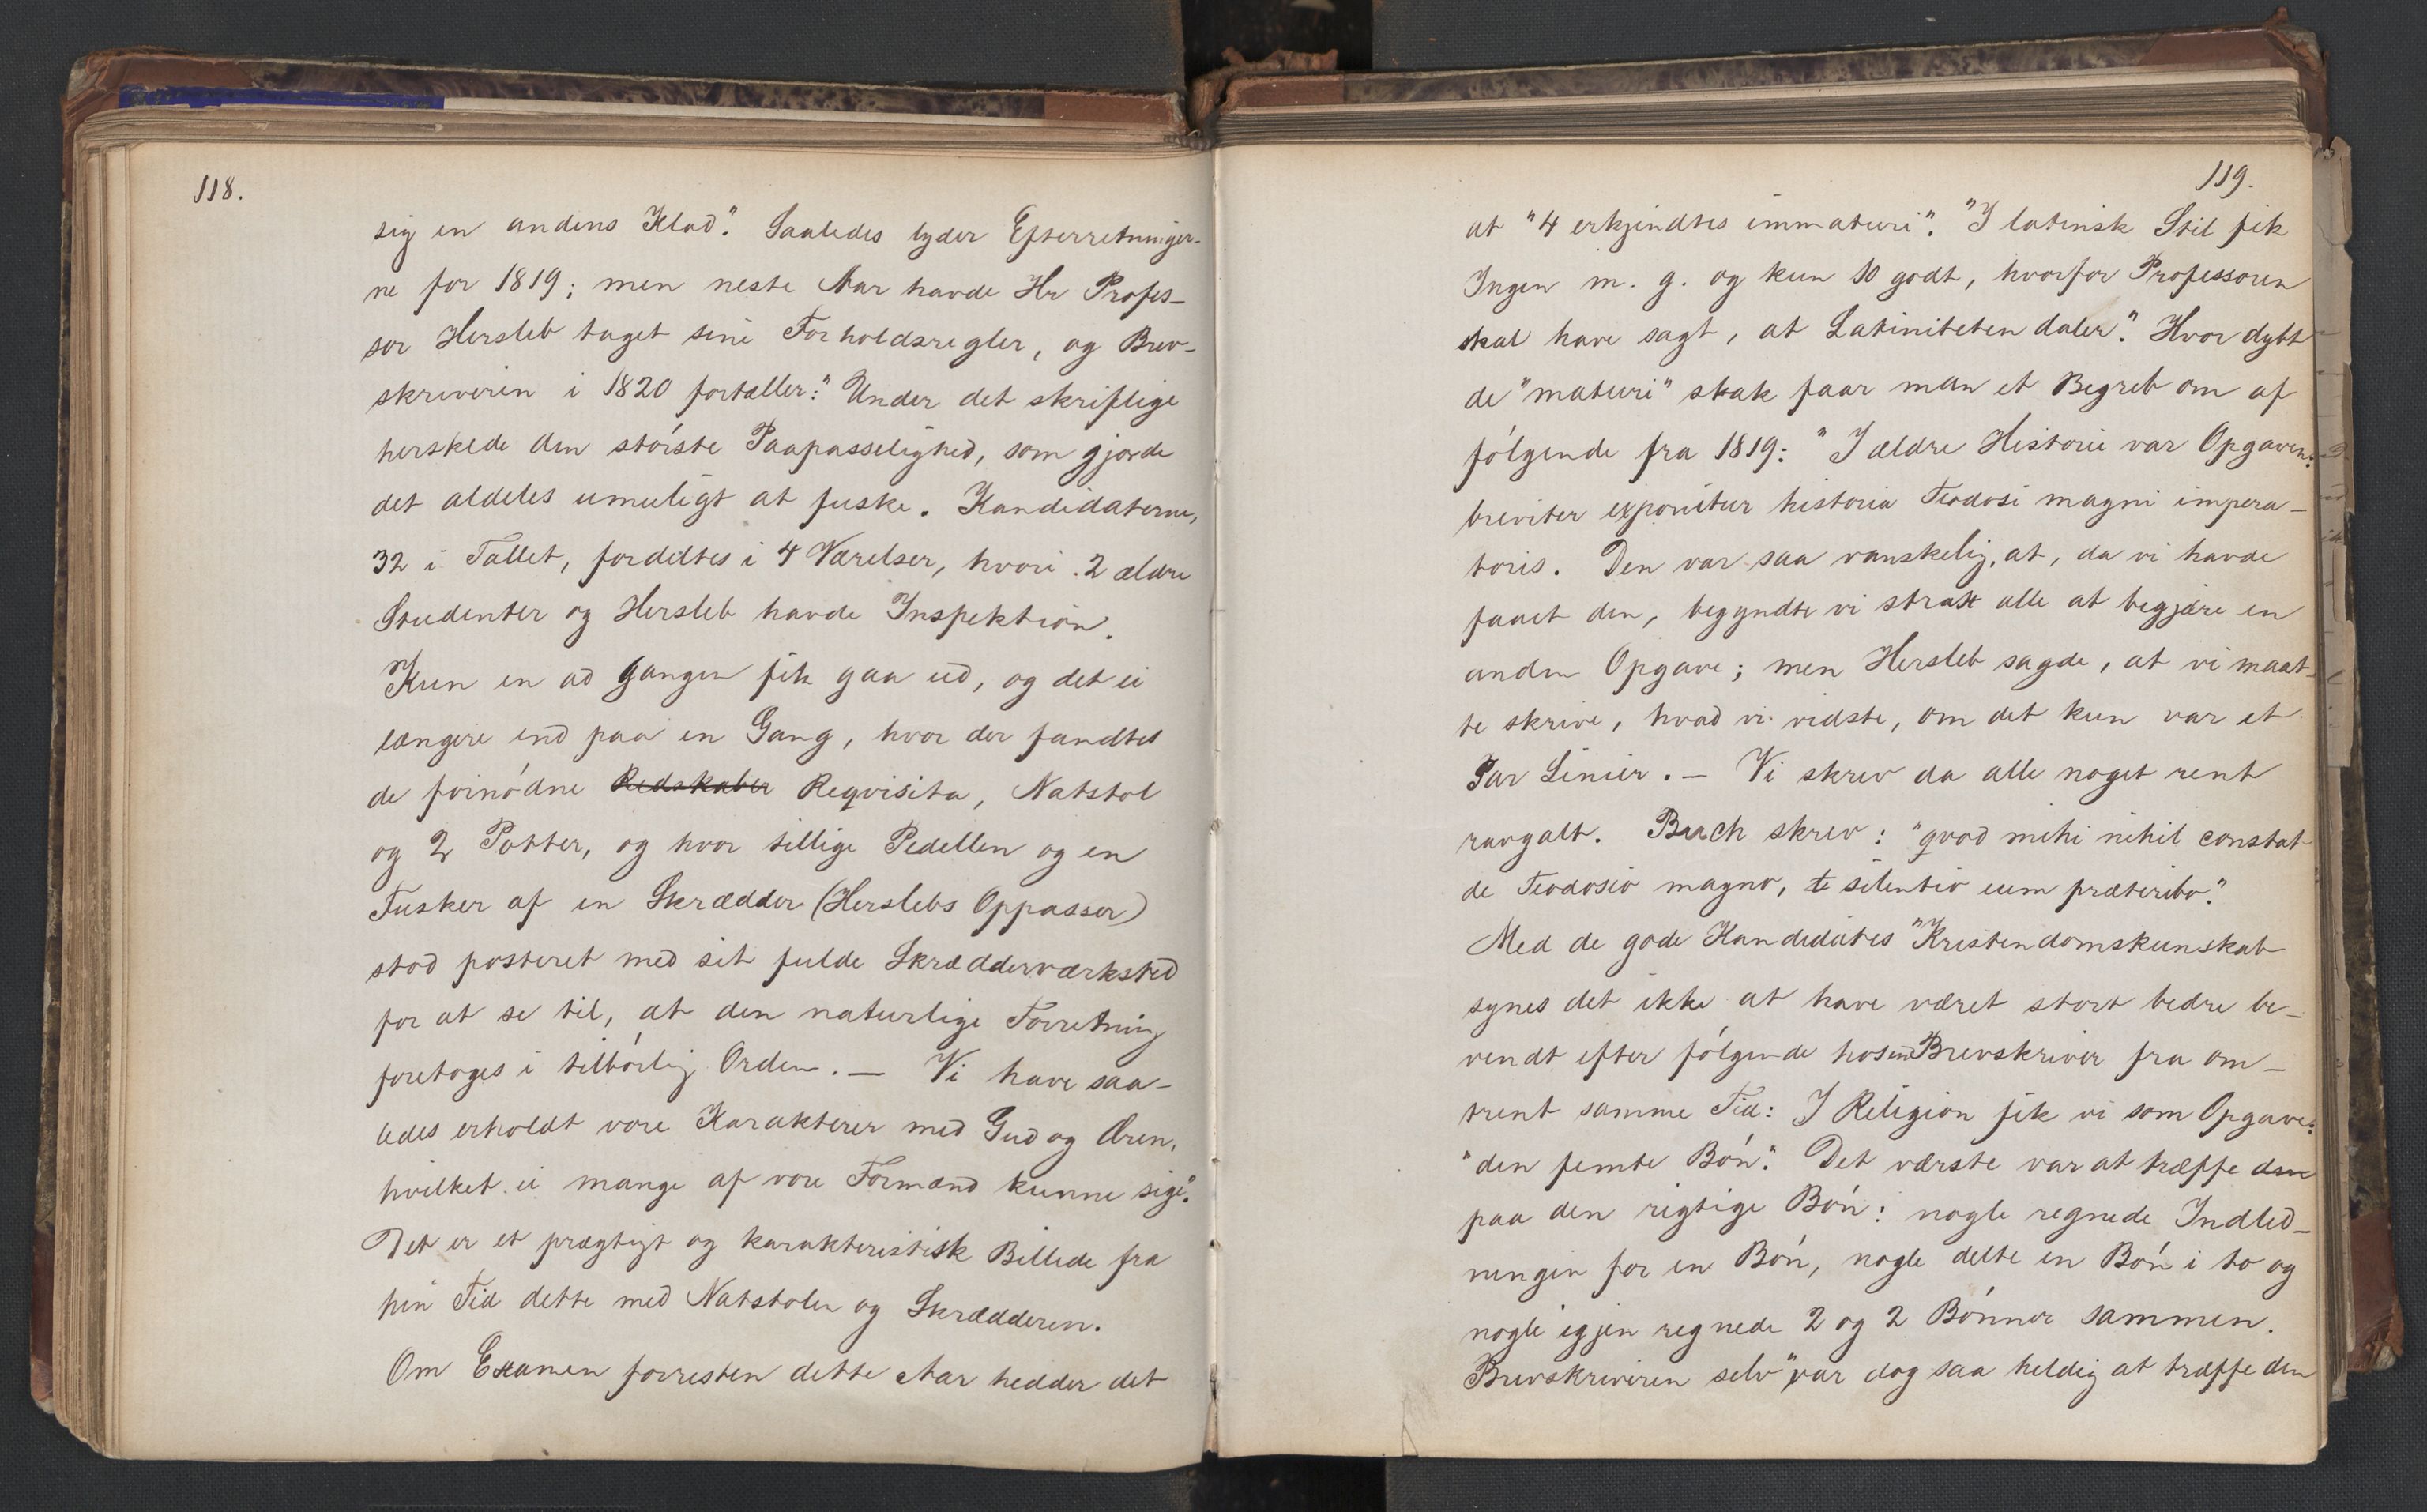 118.
sig en andens Klad". Saaledes lyder Efterretninger-
ne for 1819; men neste Aar havde Hr Profes-
sor Hersleb taget sine Forholdsregler, og Brev-
skriveren i 1820 fortæller: "Under det skriftlige
herskede den störste Paapasselighed, som gjorde
det aldeles umuligt at fuske. Kandidaterne,
32 i Tallet, fordeltes i 4 Værelser, hvori 2 ældre
Studenter og Hersleb havde Inspektion.
Kun en ad Gangen fik gaa ud, og det ei
længere end paa en Gang, hvor der fandtes
de fornödne Redskaber Reqvisita, Natstol
og 2 Potter, og hvor tillige Pedellen og en
Fusker af en Skrædder (Herslebs Oppasser)
stod posteret med sit fulde Skrædderværksted
for at se til, at den naturlige Forretning
foretoges i tilbörlig Orden. — Vi have saa-
ledes erholdt vore Karakterer med Gud og Æren,
hvilket ei mange af vore Formænd kunne sige".
Det er et prægtigt og karakteristisk Billede fra
hin Tid dette med Natstolen og Skrædderen.
Om Examen forresten dette Aar hedder det
119.
at "4 erkjendtes immaturi". "I latinsk Stil fik
Ingen m. g. og kun 10 godt, hvorfor Professoren
skal have sagt, at Latiniteten daler". Hvor dybt
de "maturi" stak faar man et Begreb om af
fölgende fra 1819: "I ældre Historie var Opgaven:
breviter exponitur historia Teodosi magni impera-
toris. Den var saa vanskelig, at, da vi havde
faaet den, begyndte vi strax alle at begjære en
anden Opgave; men Hersleb sagde, at vi maat-
te skrive, hvad vi vidste, om det kun var et
Par Linier. — Vi skrev da alle noget rent
ravgalt. Buch skrev: "qvod mihi nihil constat
de Teodosio magno, te silentio eum præteribo".
Med de gode Kandidates "Kristendomskunskab
synes det ikke at have været stort bedre be-
vendt efter fölgende hos en Brevskriver fra om-
trent samme Tid: I Religion fik vi som Opgave:
"den femte Bön". Det værste var at træffe den
paa den rigtige Bön: nogle regnede Indled-
ningen for en Bön, nogle delte en Bön i to og
nogle igjen regnede 2 og 2 Bönner sammen.
Brevskriveren selv "var dog saa heldig at træffe den